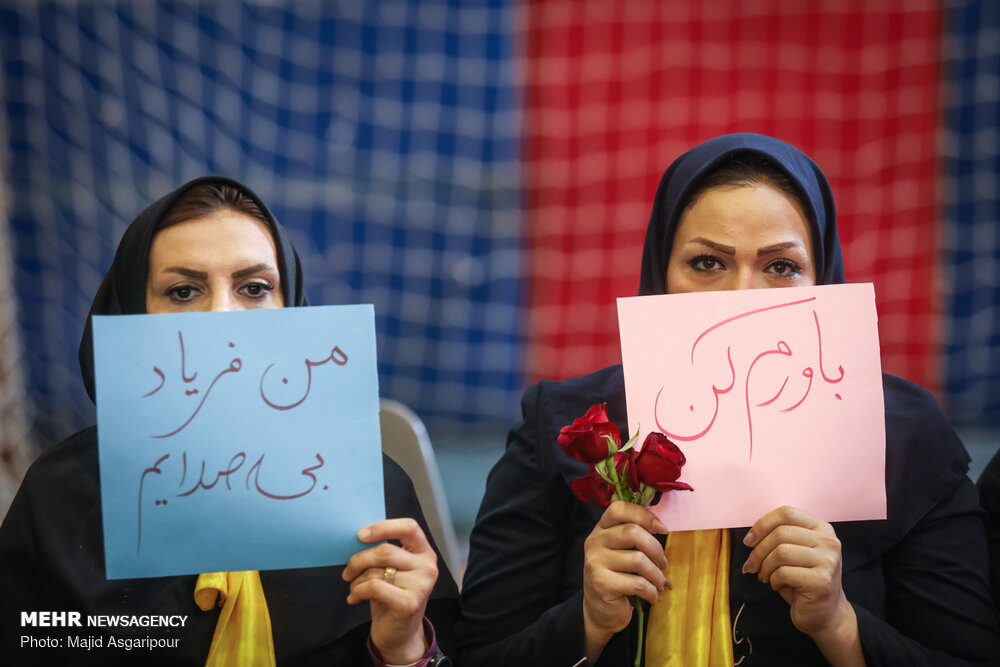 من فریاد
بی صدایم
باورم کن
MEHR NEWSAGENCY
Photo: Majid Asgaripour